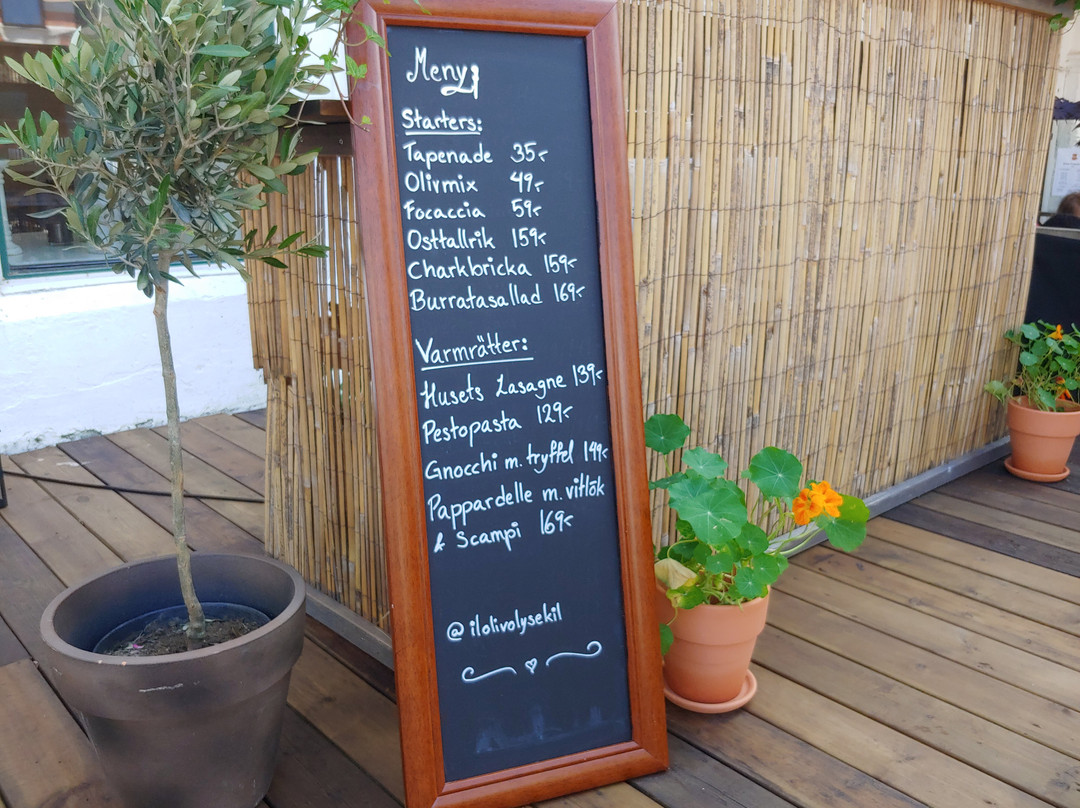 Meny
Starters:
Tapenade 35:-
Olivmix 49:-
Focaccia 59:-
Osttallrik 159:-
Charkbricka 159:-
Burratasallad 169:-
Varmrätter:
Husets Lasagne 139:-
Pestopasta 129:-
Gnocchi m. tryffel 149:-
Pappardelle m. vitlök
& Scampi 169:-
@ilolivolysekil